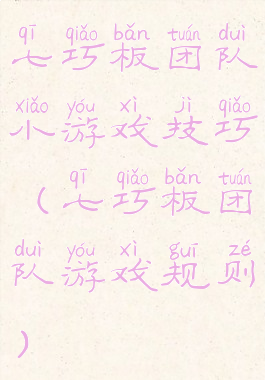 qī qiǎo bǎn tuán duì
七巧板团队
xiǎo yóu xì jì qiǎo
小游戏技巧
qī qiǎo bǎn tuán
(七巧板团
duì yóu xì guī zé
队游戏规则
)